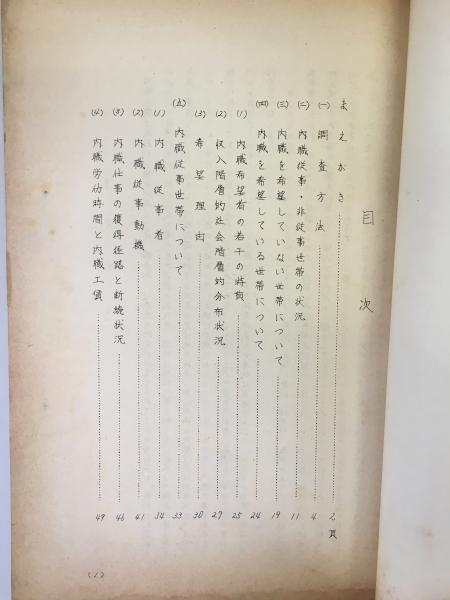 目次
まえがき……2頁
(一) 調査方法……4
(二) 内職従事・非従事世帯の状況……11
(三) 内職を希望していない世帯について……19
(四) 内職を希望している世帯について……24
(1) 内職希望者の若干の特質……25
(2) 収入階層的社会階層的分布状況……27
(3) 希望理由……30
(五) 内職従事世帯について……33
(1) 内職従事者……34
(2) 内職従事動機……41
(3) 内職仕事の獲得径路と断続状況……46
(4) 内職労働時間と内職工賃……49
(1)